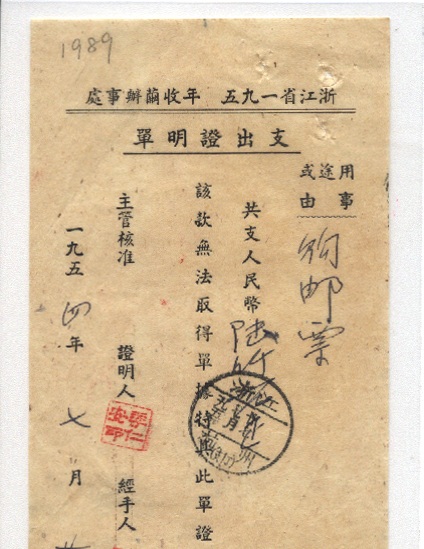 1989
浙江省一九五 年收繭辦事處
支出證明單
用途或
事由
购邮票
共支人民幣陆
該款無法取得單據特具此單證
主管核准 證明人 經手人
一九五四年七月
浙江